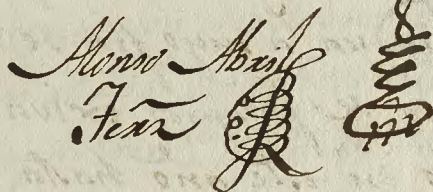 Alonso Abril
Fern̄z